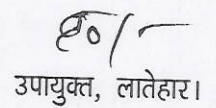 ह०/-
उपायुक्त, लातेहार।